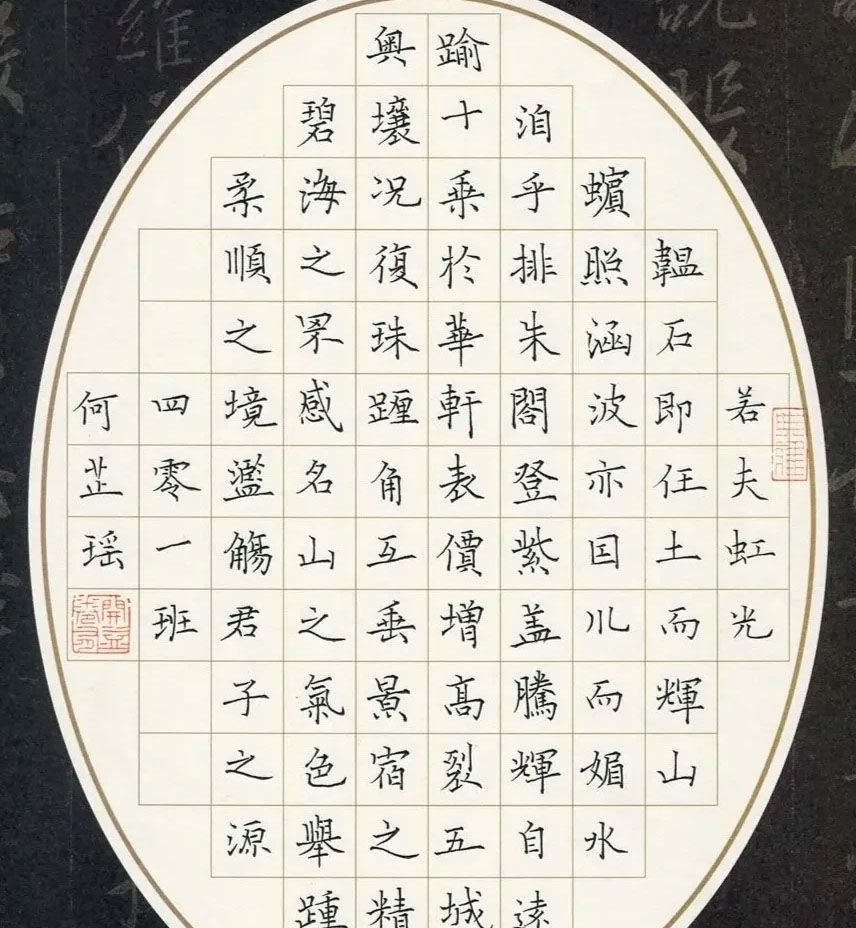 若夫虹光
韞石即任土而輝山
蠙照涵波亦囙川而媚水
洎乎排朱閣登紫盖騰輝自遠
踰十乘於華軒表價增高裂五城
奥壤况復珠躔角互垂景宿之精
碧海之罘感名山之氣色舉踵
柔順之境濫觴君子之源
四零一班
何芷瑶